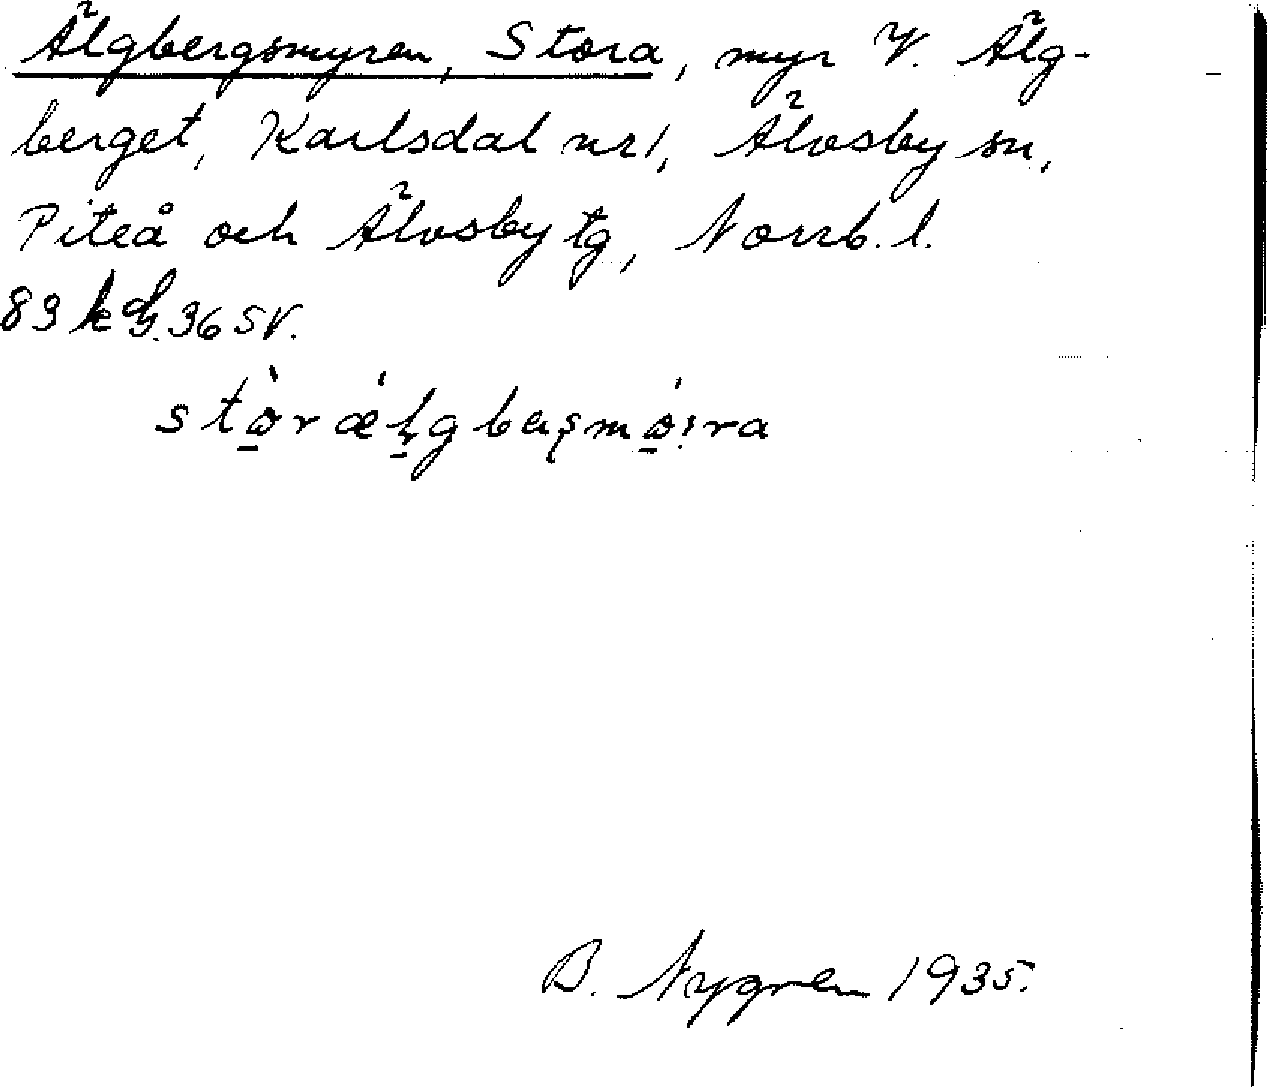 Älgbergsmyren, Stora, myr V. Älg-
berget, Karlsdal nr 1, Älvsby sn,
Piteå och Älvsby tg, Norrb. l.
83 36 SV.
B. Nygren 1935.